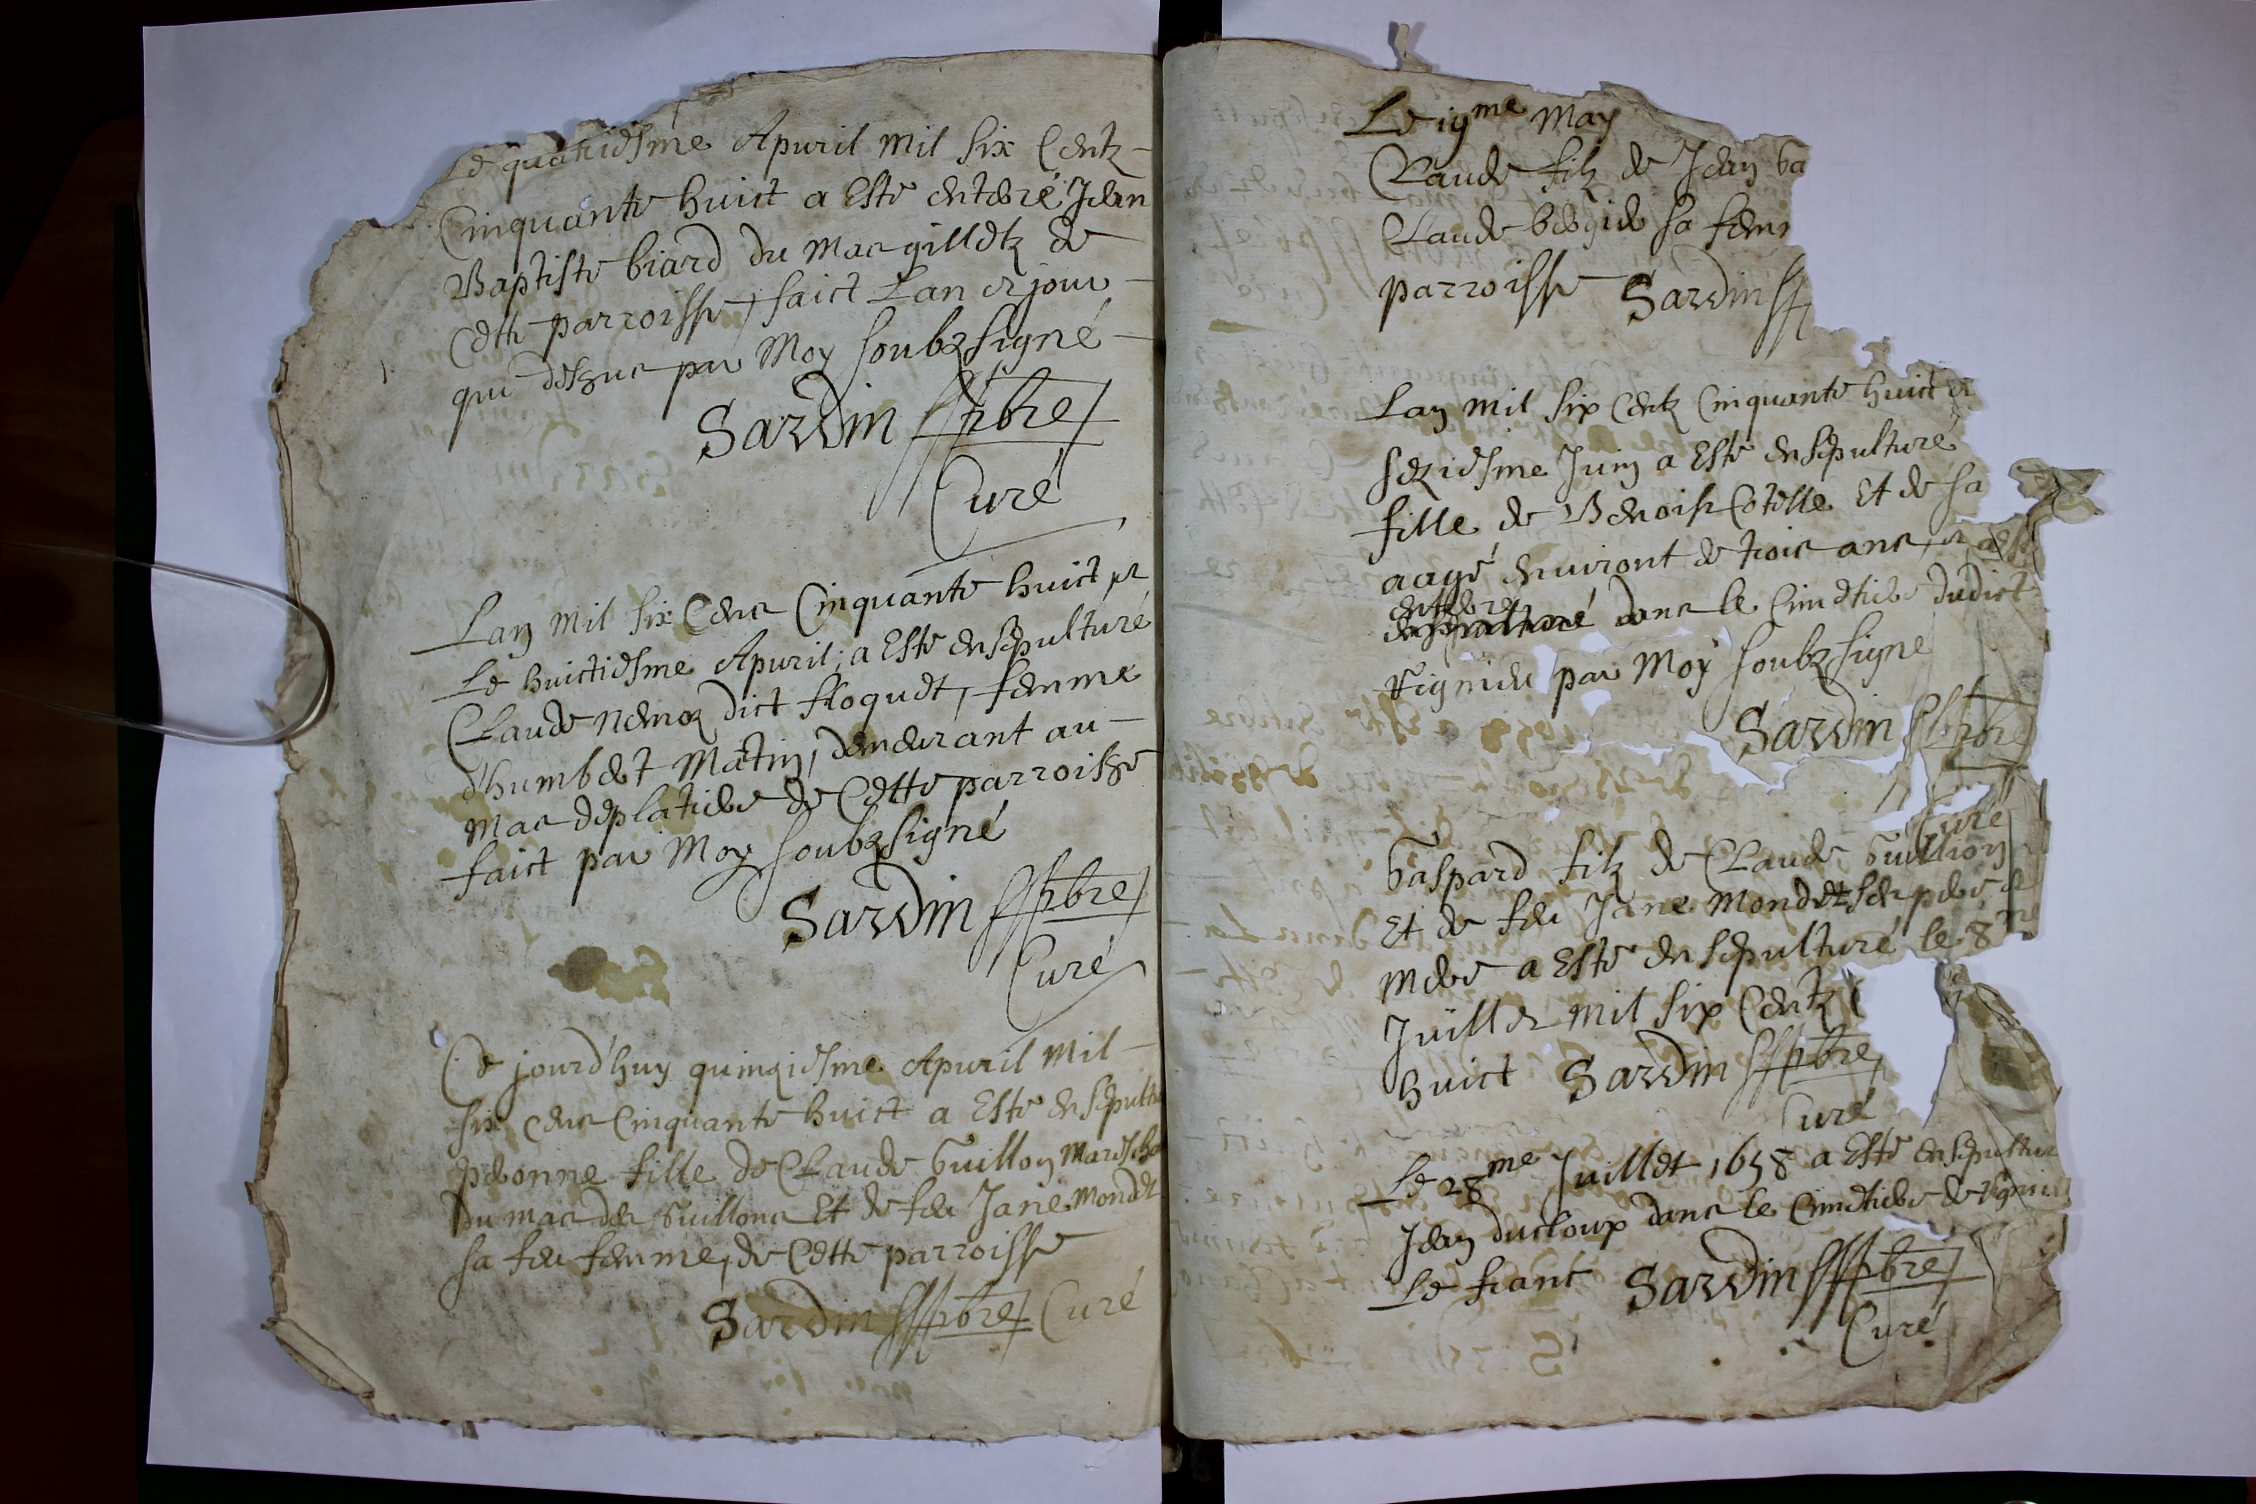 Le quatriesme Apuril mil six Centz
Cinquante huict a Esté enterré Jean
Baptiste biard du mas gilletz de
Cette parroisse, faict Lan et jour
que dessus par Moy soubzsigné
Sardin pbre
Curé
Lan mil six Cens Cinquante huict et
Le huictiesme Apuril, a Esté ensepulturé
Claude nemoz dict floquet, femme
d'humbert Matin, demeurant au
mas de platiere de Cette parroisse
faict par Moy soubzsigné
Sardin pbre
Curé
Ce jourd'huy quinziesme Apuril mil
six cens Cinquante huict a Esté ensepultu
peronne fille de Claude Guillon Maresch
du mas des Guillons Et de feu Jane Mondet
sa feu femme, de Cette parroisse
Sardin pbre Curé
Le 19me May
Claude filz de Jean Ga
Claude sa fem
parroisse Sardin
Lan mil six Centz Cinquante huict et
seziesme Juin a Esté ensepulturé
fille de Benoist Cotelle Et de sa
aagé enuiront de trois ans, et
enterré
ensepulturé dans le Cimetiere dudict
Vignieu par Moy soubzsigne
Sardin pbre
Curé
Gaspard filz de Claude Guillion
Et de feu Jane Mondet ses pere et
mere a Esté ensepulturé le 8me
Juillet mil six Centz C
huict Sardin pbre
Curé
Le 28me Juillet 1658 a Esté ensepultur
Jean ducloup dans le Cimetiere de Vignieu
Le franc Sardin pbre
Curé